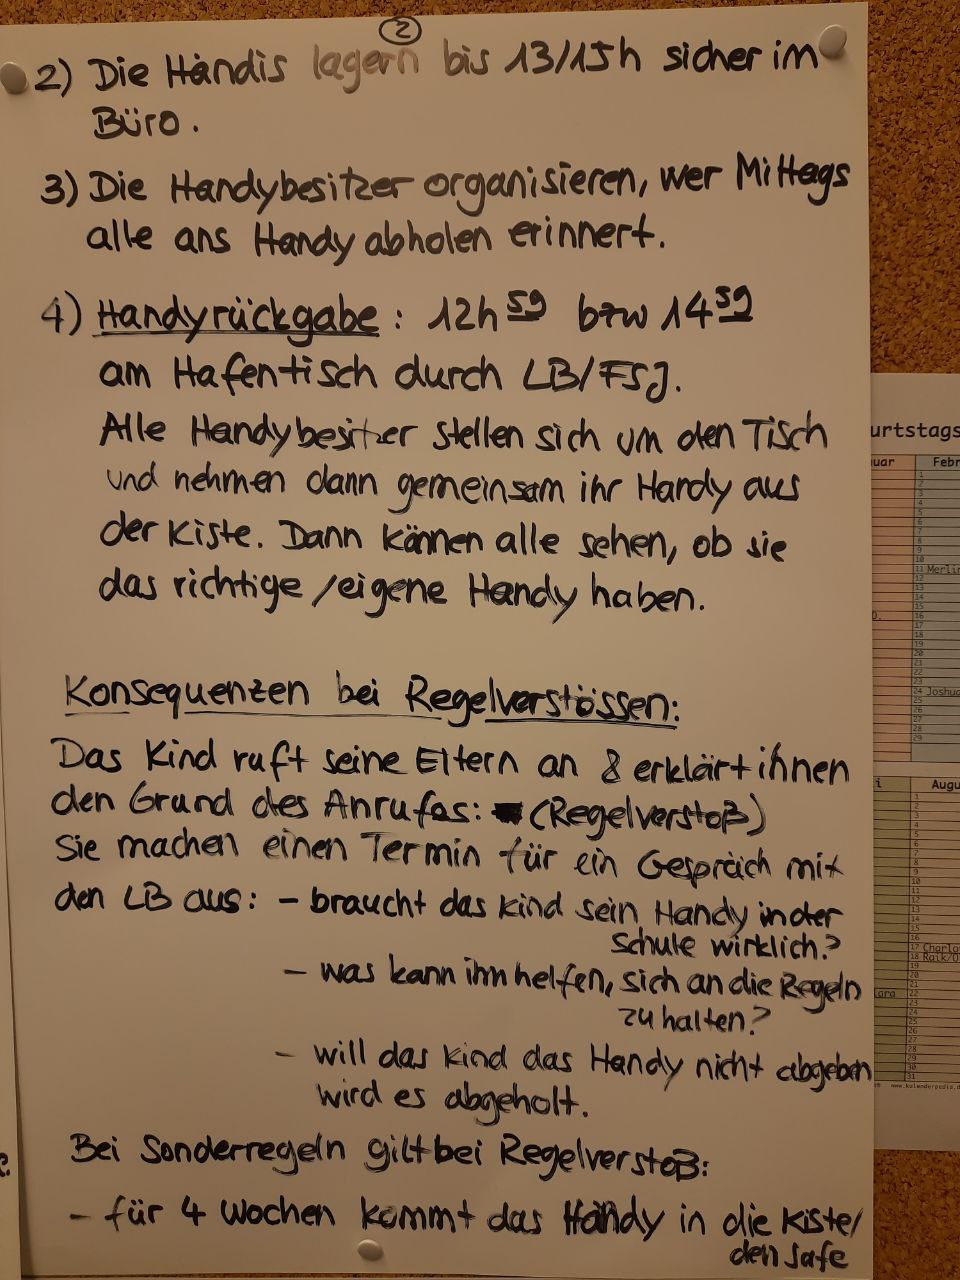 2
2) Die Handis lagern bis 13/15h sicher im
Büro.
3) Die Handybesitzer organisieren, wer Mittags
alle ans Handy abholen erinnert.
4) Handyrückgabe: 12h 59 bzw 14 59
am Hafentisch durch LB/FSJ.
Alle Handybesitzer stellen sich um den Tisch
und nehmen dann gemeinsam ihr Handy aus
der Kiste. Dann können alle sehen, ob sie
das richtige/eigene Handy haben.
Konsequenzen bei Regelverstössen:
Das Kind ruft seine Eltern an & erklärt ihnen
den Grund des Anrufes: (Regelverstoß)
Sie machen einen Termin für ein Gespräch mit
den LB aus: - braucht das Kind sein Handy in der
Schule wirklich?
- was kann ihm helfen, sich an die Regeln
zu halten?
- will das Kind das Handy nicht abgeben
wird es abgeholt.
Bei Sonderregeln gilt bei Regelverstoß:
- für 4 Wochen kommt das Handy in die Kiste/
den Safe
urtstags
uar Febr
11 Merlin
24 Joshua
i Augu
17 Charlo
18 Raik/O
ara 22
www.kalenderpedia.d